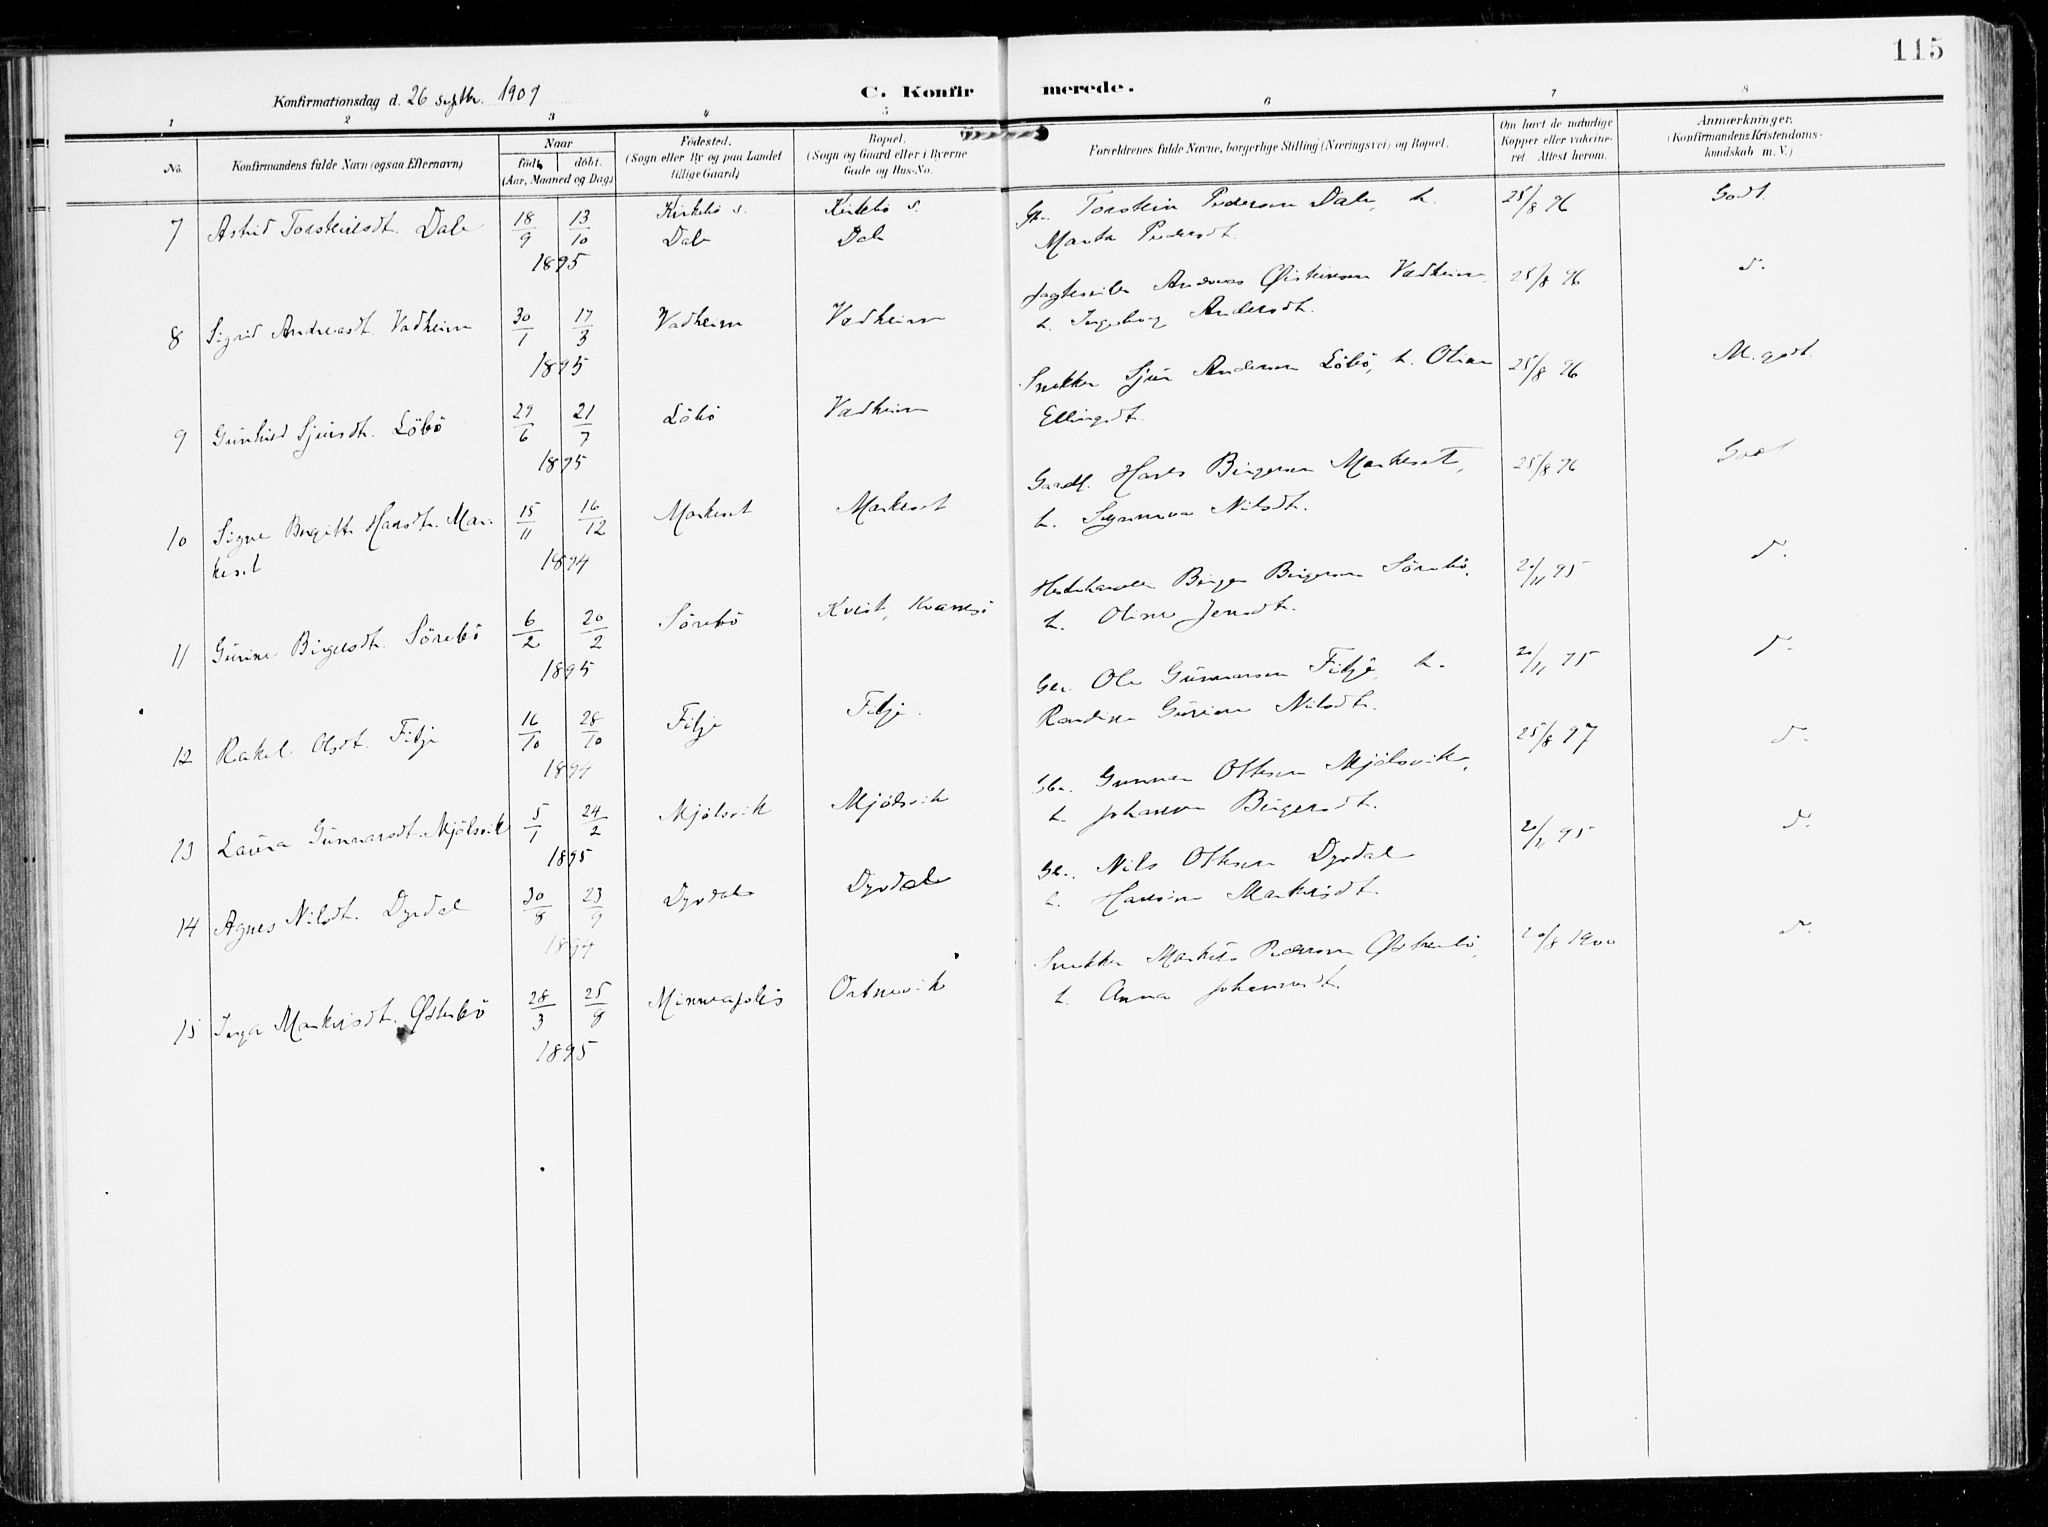 115
Konfirmationsdag d. 26 septbr. 1909
C. Konfirmerede.
1 2 3 4 5 6 7 8
No.
Konfirmandens fulde Navn (ogsaa Efternavn)
Naar
født døbt.
(Aar, Maaned og Dag)
Fødested.
(Sogn eller By og paa Landet
tillige Gaard)
Bopæl.
(Sogn og Gaard eller i Byerne
Gade og Hus-No.
Forældrenes fulde Navne, borgerlige Stilling (Næringsvei) og Bopæl.
Om havt de naturlige
Kopper eller vakcine-
ret Attest herom.
Anmærkninger.
(Konfirmandens Kristendoms-
kundskab m. V.)
7 Astrid Torsteinsdt. Dale 18/9 13/10 1895 Kirkebö s. Dale Kirkebö s. Dale
Torstein Pedersen Dale, h.
Marta Pedersdt. 25/8 96 Godt.
8 Sigrid Andreasdt. Vadheim 30/1 17/3 1895 Vadheim Vadheim
Andreas Øistensen Vadheim,
h. Ingeborg Andersdt. 25/8 96 d.
9 Gunhild Sjursdt. Löbö 29/6 21/7 1895 Löbö Vadheim
Snekker Sjur Andersen Löbö, h. Oline
Ellingsdt. 25/8 96 M. godt.
10 Signe Birgitte Hansdt. Mar-
keset 15/11 16/12 1894 Markeset Markeset
Gaardb. Hans Birgersen Markeset,
h. Synneva Nilsdt. 25/8 96 Godt
11 Gurine Birgersdt. Sörebö 6/2 20/2 1895 Sörebö Kvist, Kvamsö
Birger Birgersen Sörebö,
h. Oline Jensdt. 20/11 95 d.
12 Rakel Olsdt. Fitje 16/10 28/10 1894 Fitje Fitje.
Gbr. Ole Gunnarsen Fitje, h.
Randine Gurine Nilsdt. 20/11 95 d.
13 Laura Gunnarsdt. Mjölsvik 5/1 24/2 1895 Mjölsvik Mjölsvik
Gbr. Gunnar Ottesen Mjölsvik,
h. Johanna Birgersdt. 25/8 97 d.
14 Agnes Nilsdt. Dyrdal 30/8 23/9 1894 Dyrdal Dyrdal
Gbr. Nils Ottesen Dyrdal
h. Hansine Markusdt. 95 d.
15 Inga Markusdt. Østerbö 28/3 25/8 1895 Minneapolis Ortnevik
Snekker Markus Pedersen Østerbö,
h. Anna Johannesdt. 20/8 1900 d.